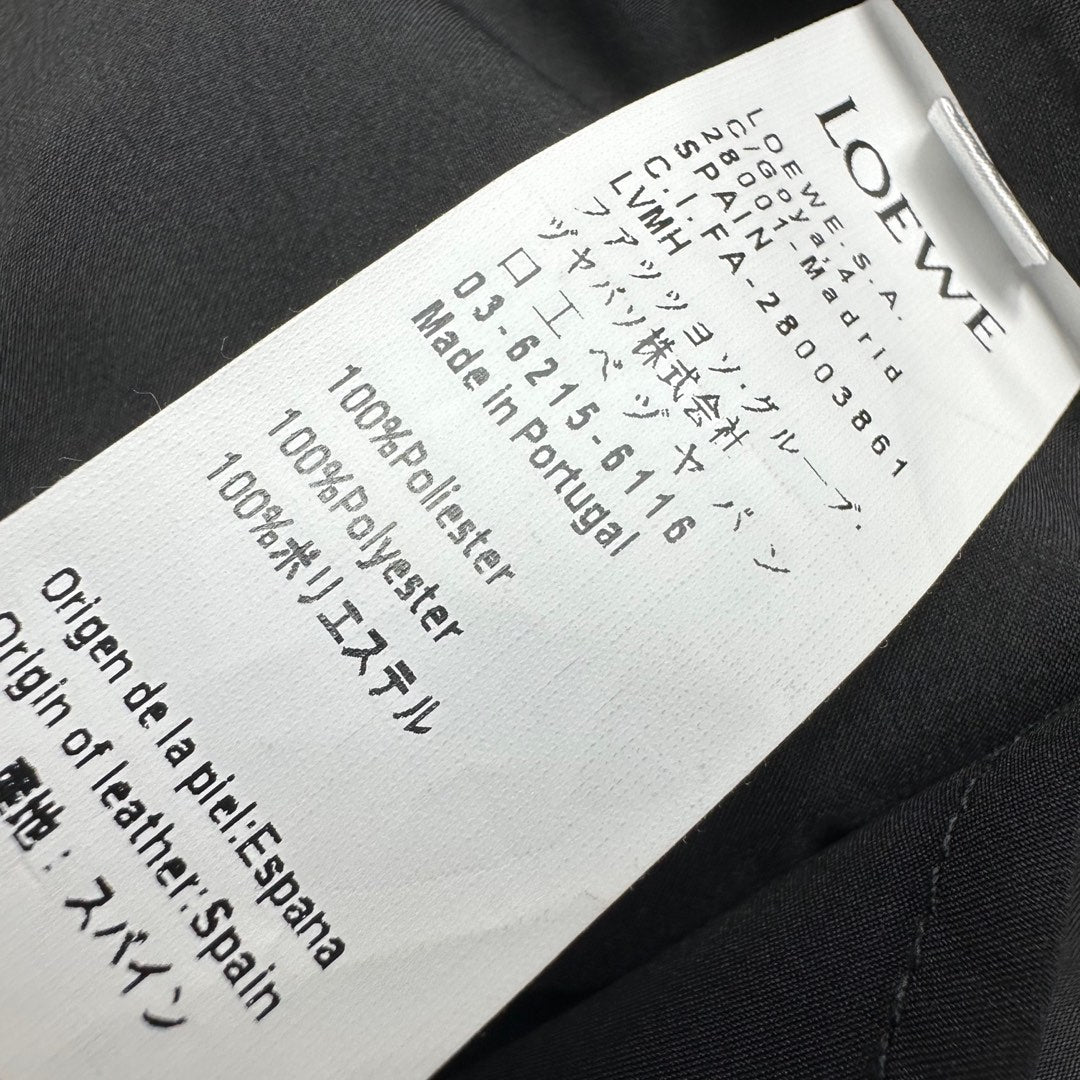 LOEWE
LOEWE.S.A.
C/Goya,4
28001-Madrid
SPAIN
C.I.FA-28003861
LVMH
ファッツョソ・グループ・
ヅャパソ株式会社
口エベヅヤバン
03-6215-6116
Made in Portugal
100%Poliester
100%Polyester
100%ポリエステル
Origen de la piel:Espana
Origin of leather:Spain
産地：スバイン